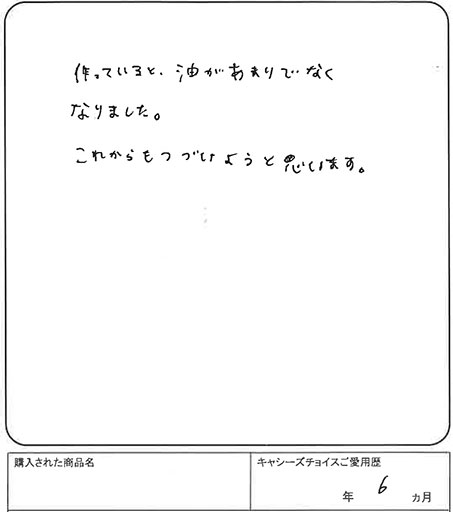 作っていると、油があまりでなく
なりました。
これからもつづけようと思います。
購入された商品名
キャシーズチョイスご愛用歴
年 6 カ月